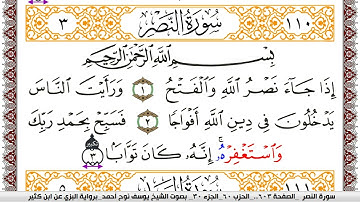 ٣ سُورَةُ النَّصْرِ ١١٠
بِسْمِ اللَّهِ الرَّحْمَٰنِ الرَّحِيمِ
إِذَا جَآءَ نَصْرُ اللَّهِ وَالْفَتْحُ ١ وَرَأَيْتَ النَّاسَ
يَدْخُلُونَ فِي دِينِ اللَّهِ أَفْوَاجًا ٢ فَسَبِّحْ بِحَمْدِ رَبِّكَ
وَاسْتَغْفِرْهُۥ إِنَّهُۥ كَانَ تَوَّابًا ٣
١١١
سورة النصر _الصفحة ٦٠٣ .. الحزب ٦٠ .الجزء ٣٠ .بصوت الشيخ يوسف نوح أحمد .برواية البزي عن ابن كثير